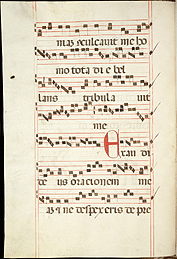 me conculcavit me ho
mo tota di e bel
lans tribula vit
me
Exau di
de us oracionem me
am ne despexeris de pre